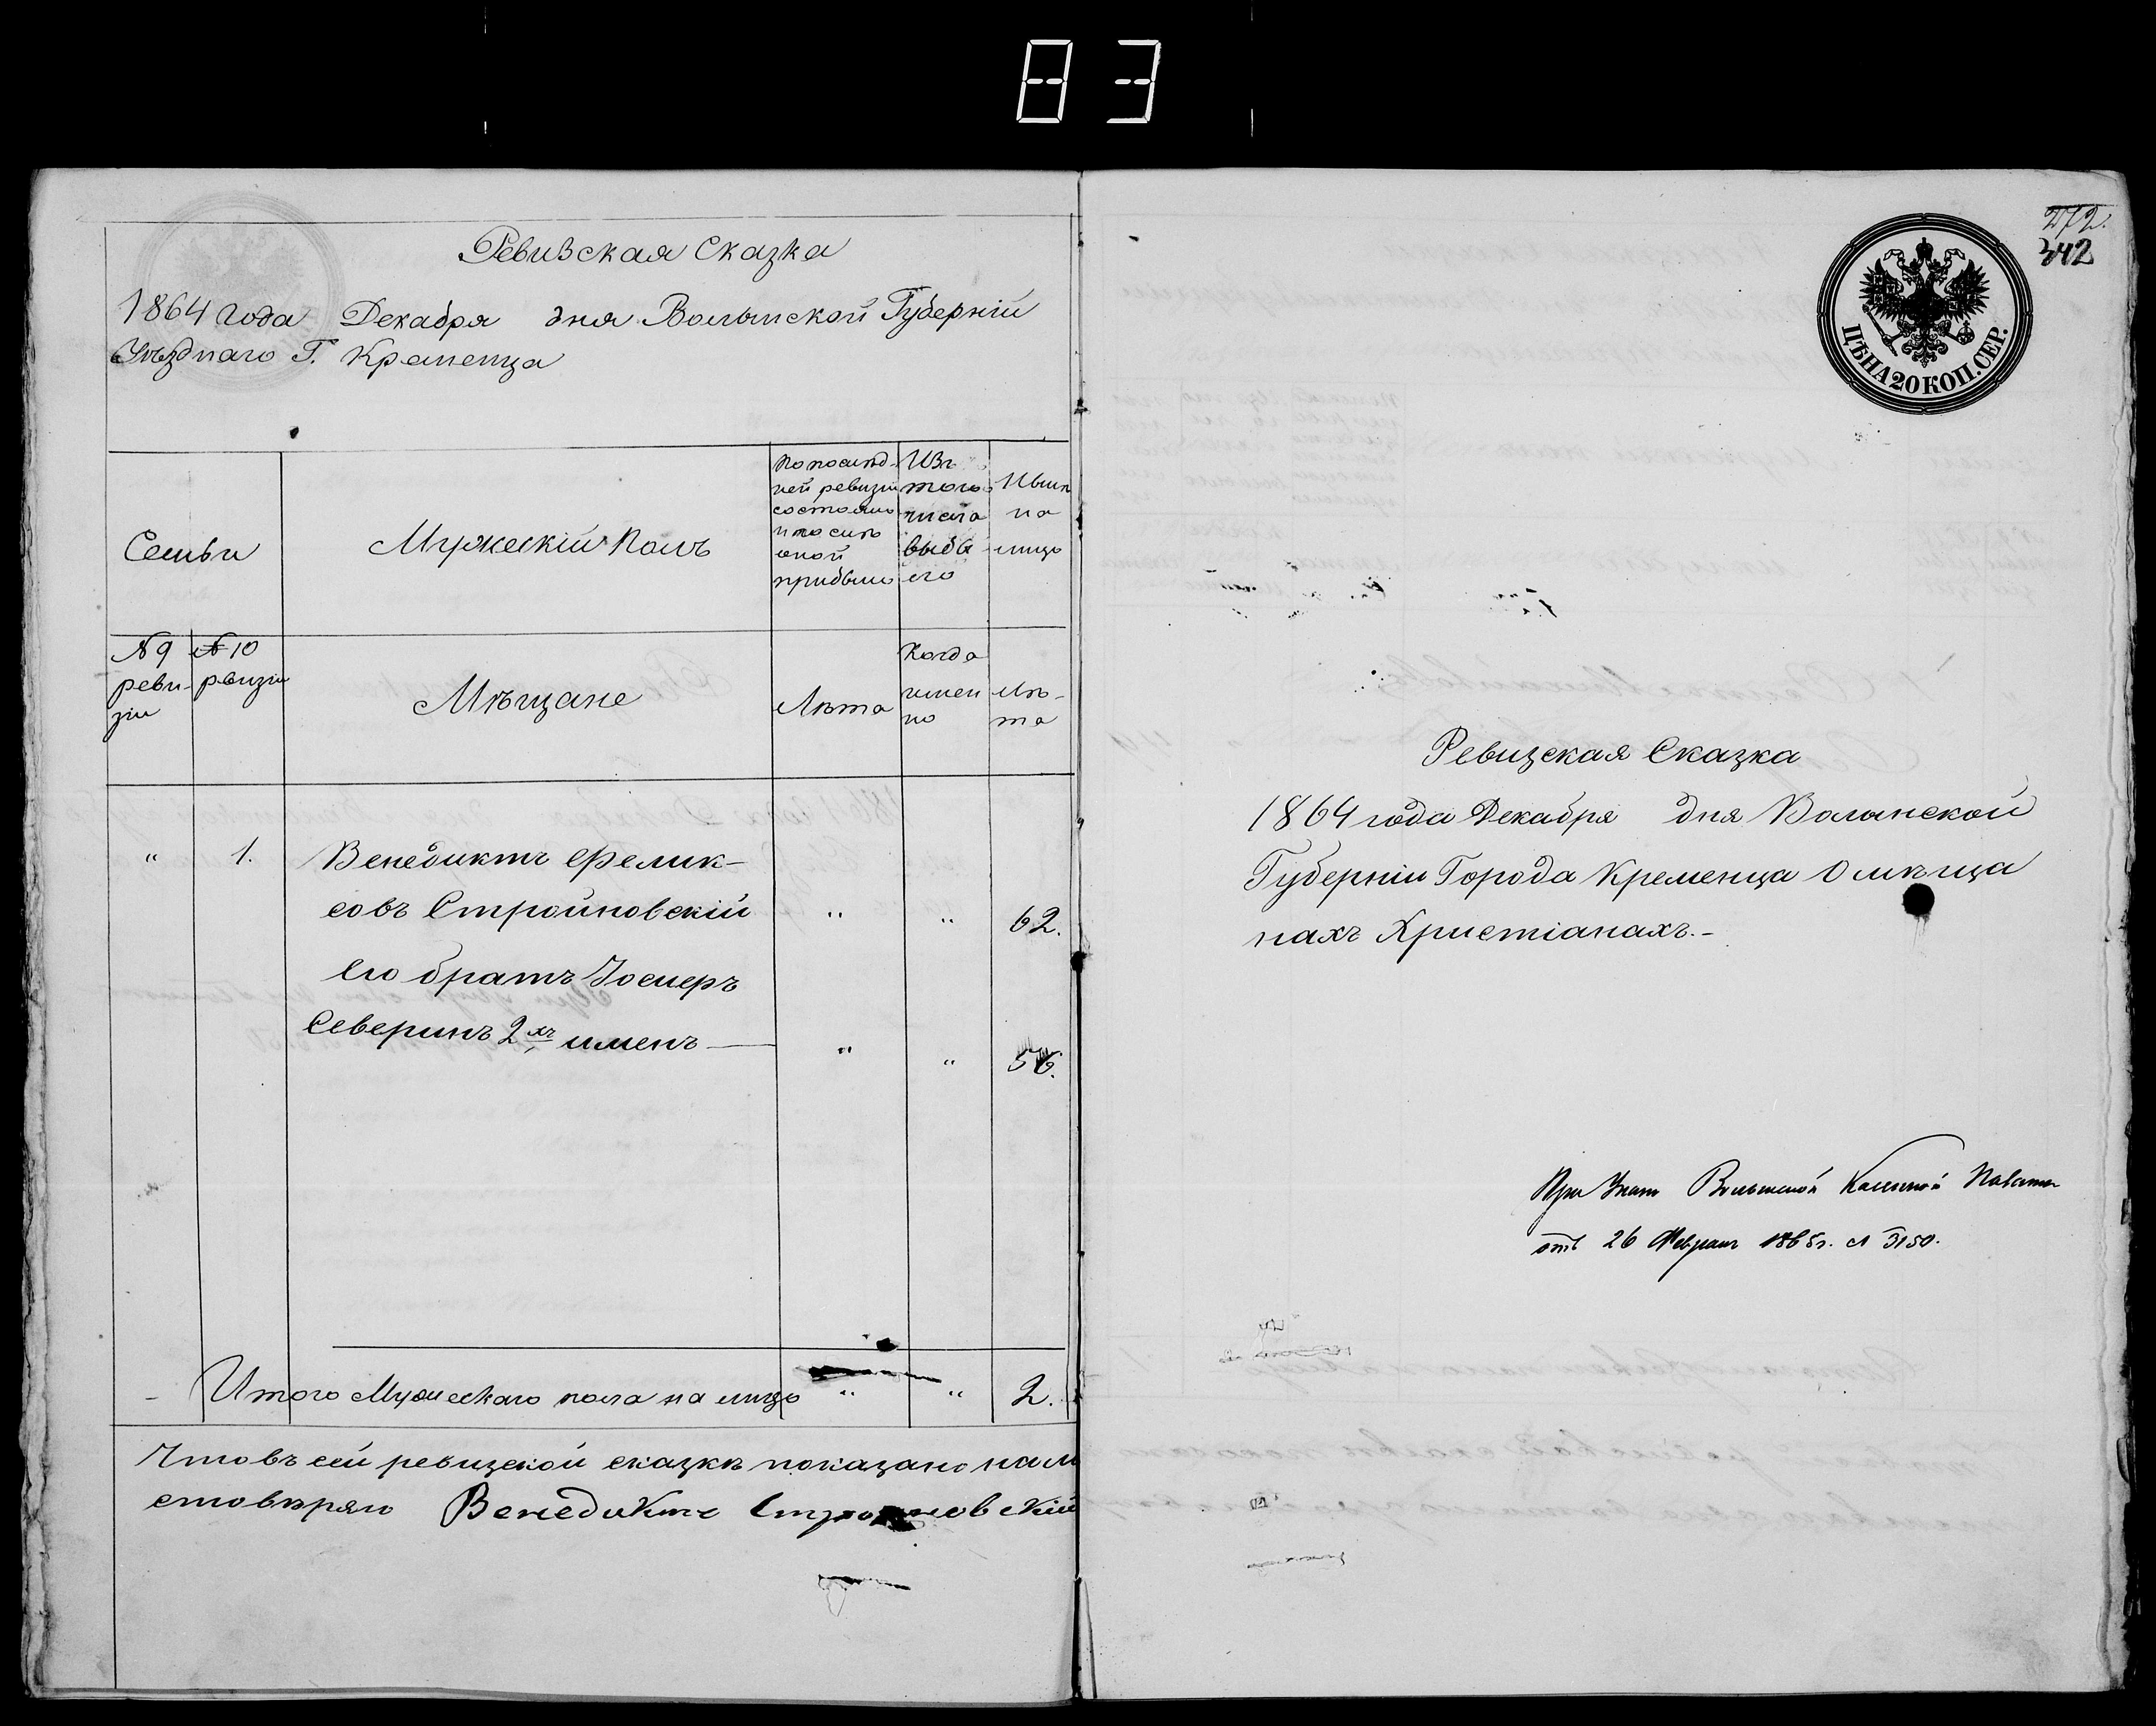 83
Ревизская Сказка
1864 года Декабря дня Волынской Губерніи
Уѣзднаго Г. Кременца
Семьи
Мужескій полъ
По послѣд-
ней ревизіи
состояло
и послѣ
оной
прибыло
Изъ
того
числа
выбы
ло
Нынѣ
на
лицо
№ 9
реви-
зіи
№ 10
ревизіи
Мѣщане
Лѣта
Когда
имен
но
Лѣ-
та
" 1. Венедиктъ Фелик-
совъ Стройновскій " " 62.
Его братъ Іосифъ
Северинъ 2хъ именъ — " " 56.
- Итого Мужескаго пола на лицо " " 2.
Что въ сей ревизской сказкѣ показано
Венедиктъ Стройновскій
272.
342
ЦѢНА 20 КОП. СЕР.
Ревизская Сказка
1864 года Декабря дня Волынской
Губерніи Города Кременца О мѣща
нахъ Христіанахъ.-
При Указѣ Волынской Казенной Палаты
отъ 26 Февраля 1865 г. № 3150.